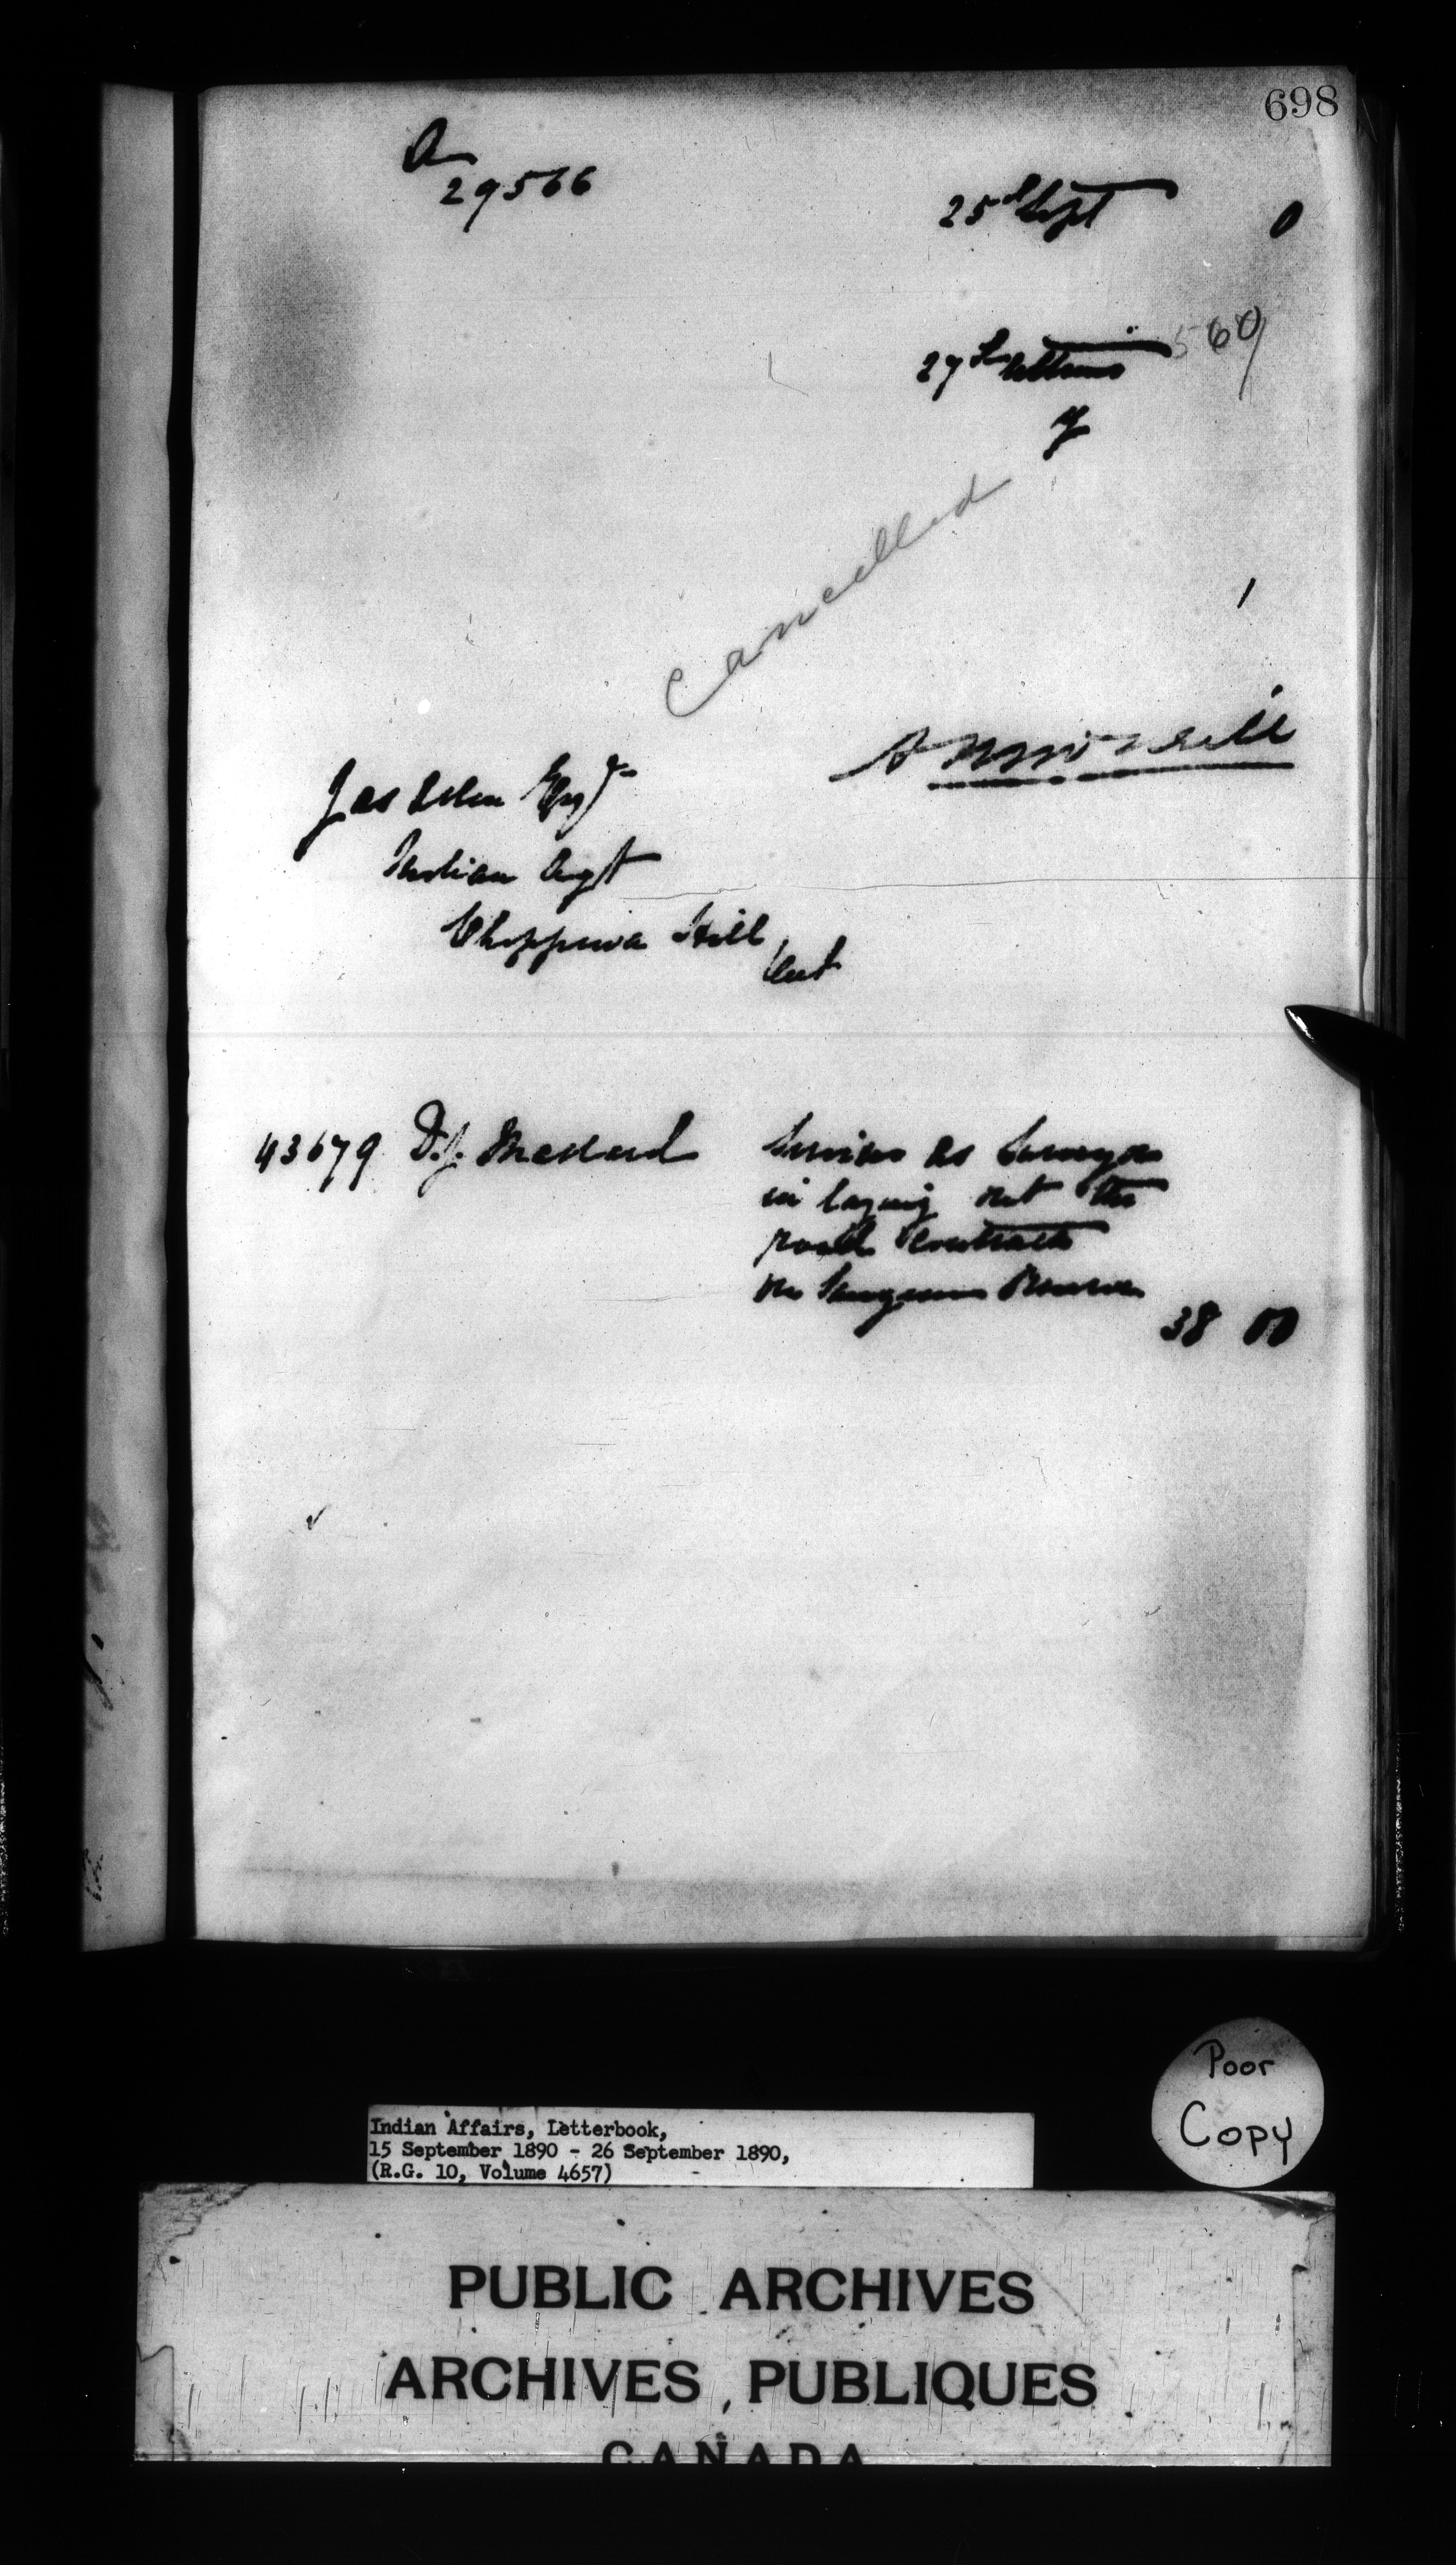 698
A
29566
25th Sept 0
560
27th ultimo
of
Cancelled
Jas Allen Esqr
Indian Agt
Chippewa Hill
Ont
43679 D.J. Services as Surveyor
in laying out the
road contracts
on Saugeen Reserve
38 00
Poor
Copy
Indian Affairs, Letterbook,
15 September 1890 - 26 September 1890,
(R.G. 10, Volume 4657)
PUBLIC ARCHIVES
ARCHIVES PUBLIQUES
CANADA